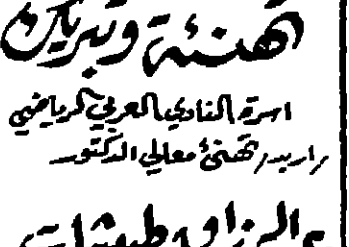 تهنئة وتبريك
اسرة النادي العربي الرياضي
/اربد/ تهنئ معالي الدكتور